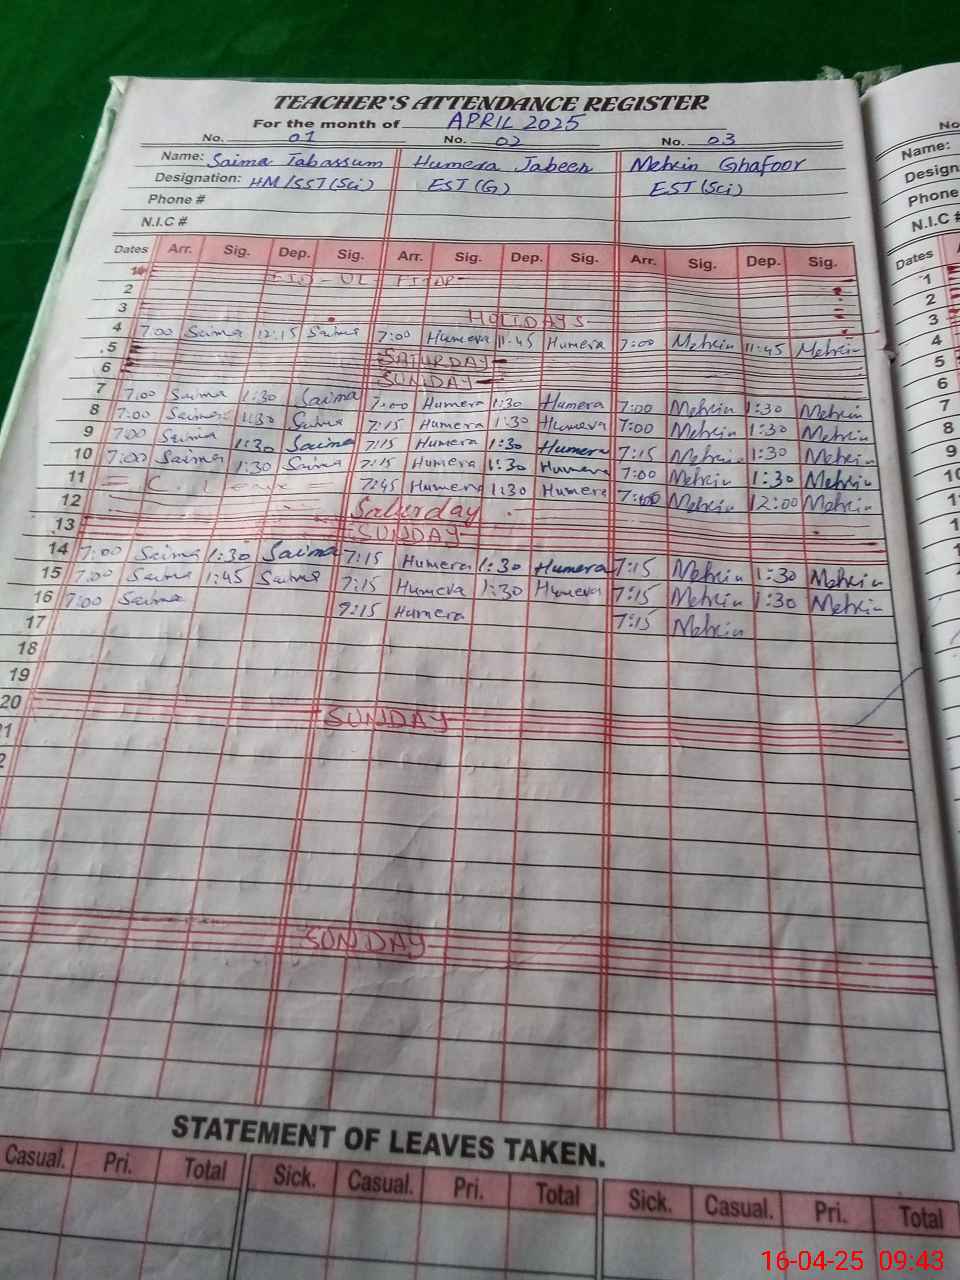 TEACHER'S ATTENDANCE REGISTER
For the month of APRIL 2025
No. 01 No. 02 No. 03
Name: Saima Tabassum Humera Jabeen Mehrin Ghafoor
Designation: HM/SST(Sci) EST(G) EST(Sci)
Phone #
N.I.C #
Dates Arr. Sig. Dep. Sig. Arr. Sig. Dep. Sig. Arr. Sig. Dep. Sig.
1 EID-UL-FITAR
2
3 HOLIDAYS
4 7:00 Saima 12:15 Saima 7:00 Humera 11:45 Humera 7:00 Mehrin 11:45 Mehrin
5 SATURDAY
6 SUNDAY
7 7:00 Saima 1:30 Saima 7:00 Humera 1:30 Humera 7:00 Mehrin 1:30 Mehrin
8 7:00 Saima 1:30 Saima 7:15 Humera 1:30 Humera 7:00 Mehrin 1:30 Mehrin
9 7:00 Saima 1:30 Saima 7:15 Humera 1:30 Humera 7:15 Mehrin 1:30 Mehrin
10 7:00 Saima 1:30 Saima 7:15 Humera 1:30 Humera 7:00 Mehrin 1:30 Mehrin
11 C. Leave 7:45 Humera 1:30 Humera Mehrin 12:00 Mehrin
12 Saturday
13 SUNDAY
14 7:00 Saima 1:30 Saima 7:15 Humera 1:30 Humera 7:15 Mehrin 1:30 Mehrin
15 7:00 Saima 1:45 Saima 7:15 Humera 1:30 Humera 7:15 Mehrin 1:30 Mehrin
16 7:00 Saima Humera 7:15 Mehrin
17
18
19
20 SUNDAY
SUNDAY
STATEMENT OF LEAVES TAKEN.
Casual. Pri. Total Sick. Casual. Pri. Total Sick. Casual. Pri. Total
No
Name:
Design
Phone
N.I.C #
Dates
1
2
3
4
5
6
7
8
9
10
11
12
16-04-25 09:43